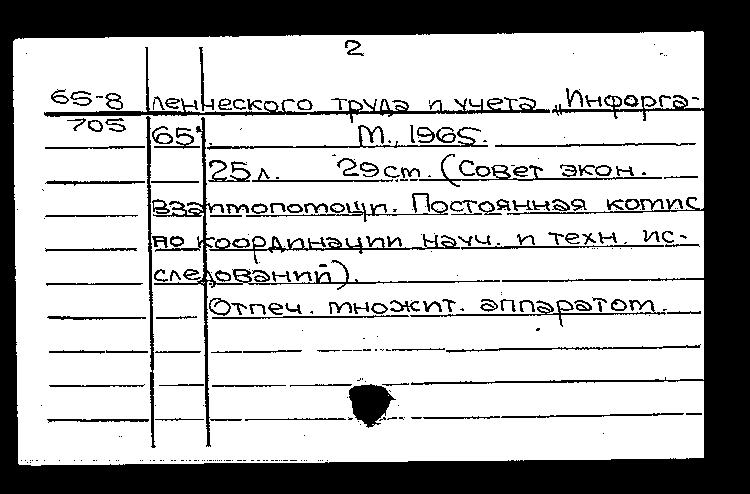 2
65-8 ленческого труда и учета „Инфорга-
705 65'. М., 1965.
25 л. 29 ст. (Совет экон.
взаимопомощи. Постоянная комис
по координации науч. и техн. ис-
следований).
Отпеч. множит. аппаратом.